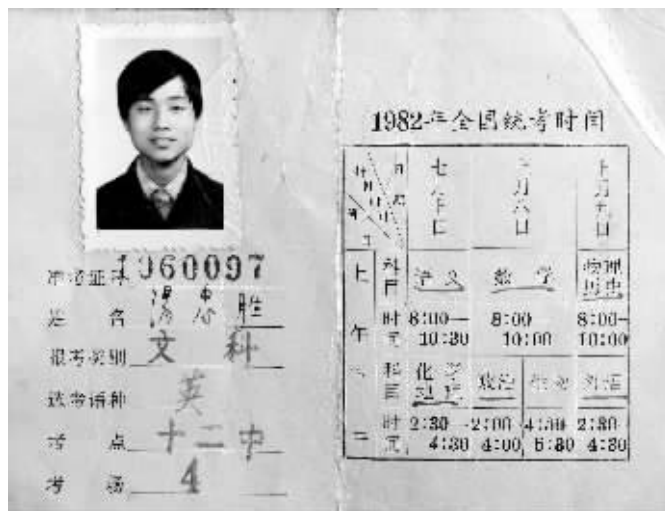 准考证号 1960097
姓 名 汤惠胜
报考类别 文 科
选考语种 英
考 点 十二中
考 场 4
1982年全国统考时间
七月七日 七月八日 七月九日
上午
科目 语文 数学 物理 历史
时间 8:00—10:30 8:00 10:00 8:00—10:00
科目 化学 地理 政治 生物 外语
时间 2:30—4:30 2:00 4:00 4:30 2:30 4:30